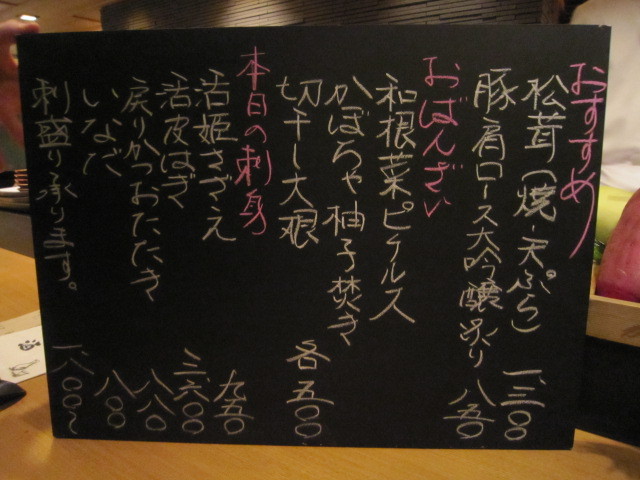 おすすめ
松茸(焼・天ぷら) 一、三〇〇
豚肩ロース大吟醸炙り 八五〇
おばんざい
和根菜ピクルス
かぼちゃ柚子焚き
切干し大根 各五〇〇
本日の刺身
活姫さざえ 九五〇
活皮はぎ 三、六〇〇
戻りかつおたたき 八八〇
いなだ 八〇〇
刺盛り承ります。 一、八〇〇〜